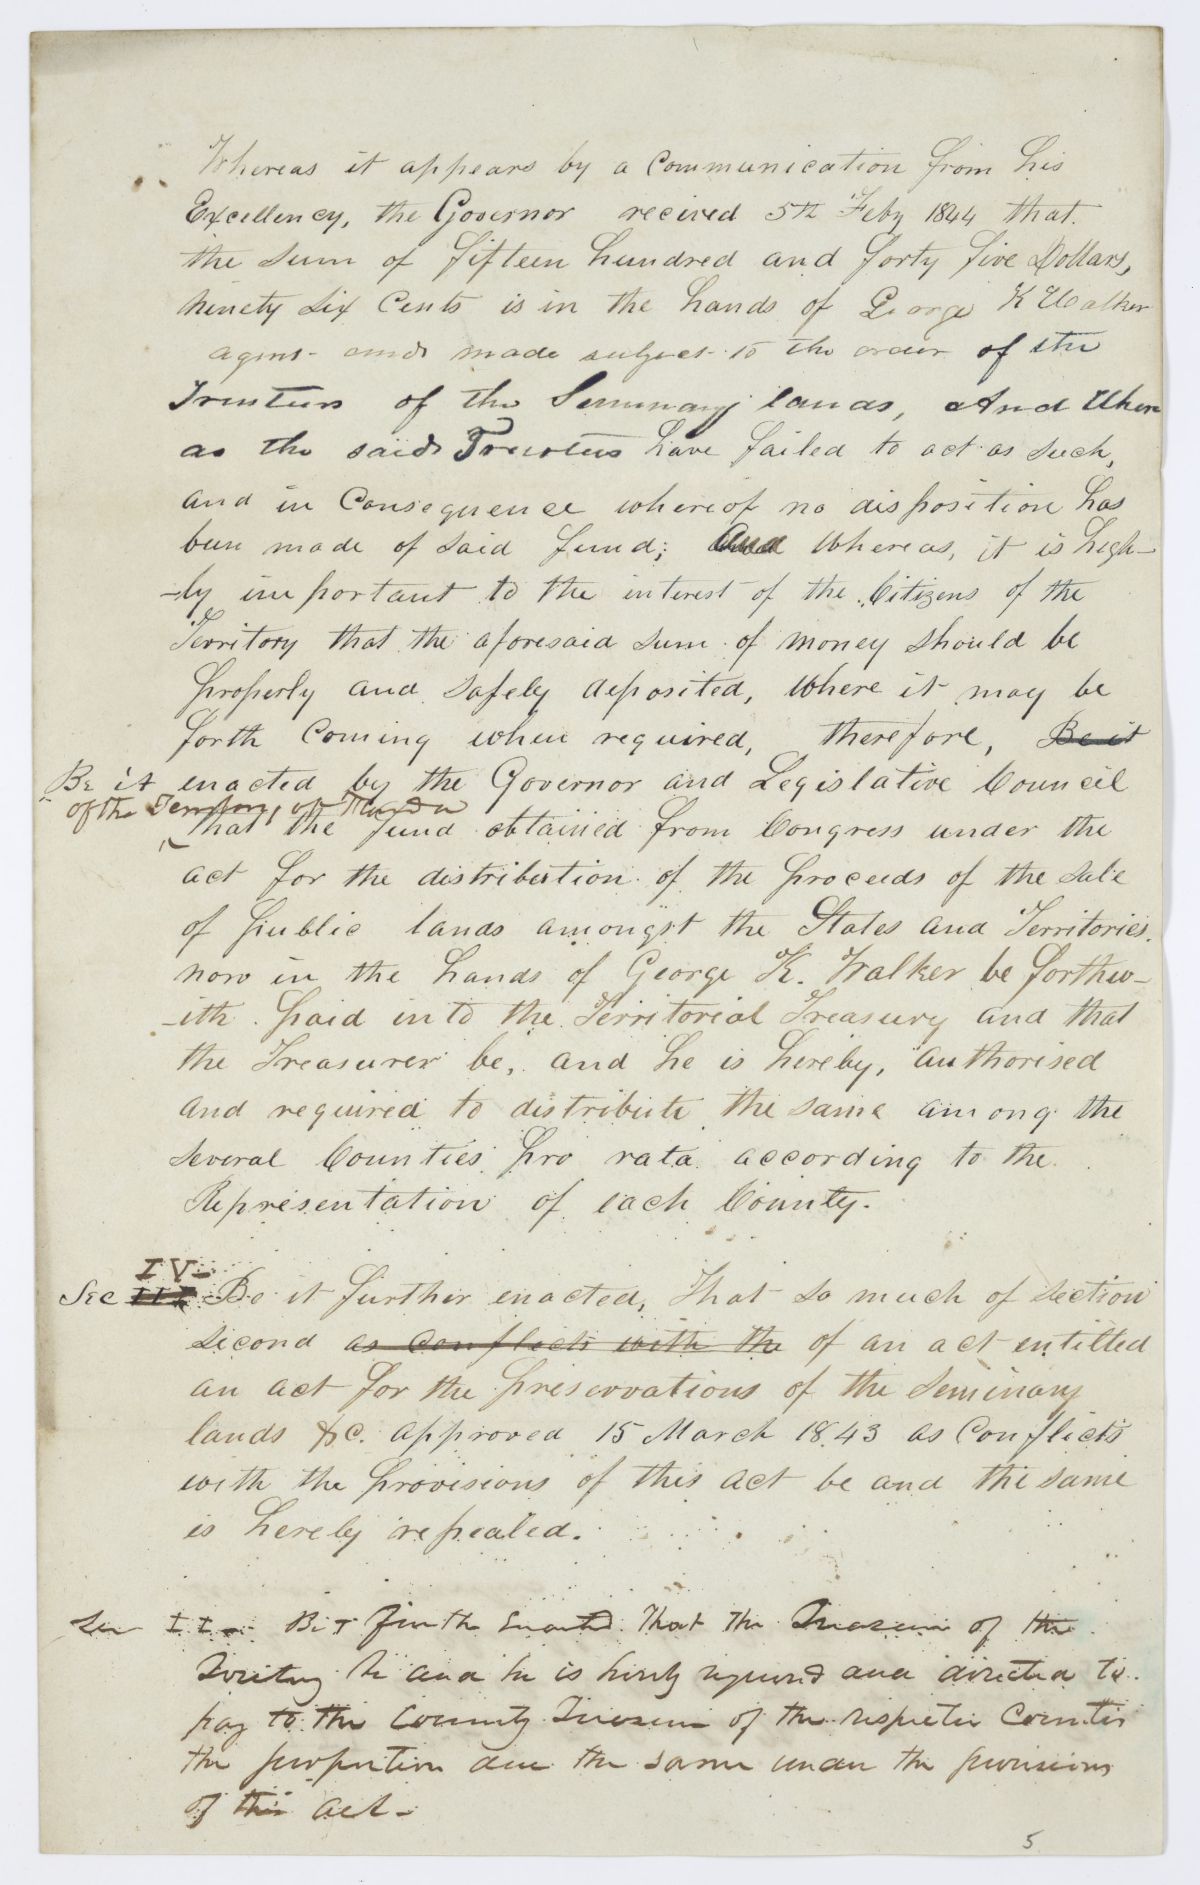 Whereas it appears by a Communication from his
Excellency, the Governor recived 5th Feby 1844 that
the Sum of fifteen hundred and forty five Dollars,
ninety six Cents is in the hands of George K Walker
agent and made subject to the order of the
Trustees of the Seminary lands, And Where
as the said Trustees have failed to act as such,
and in Consequence whereof no disposition has
been made of said fund; And Whereas, it is high-
-ly important to the interest of the Citizens of the
Territory that the aforesaid sum of money should be
properly and safely deposited, where it may be
forth Coming when required, therefore, Be it
Be it enacted by the Governor and Legislative Council
of the Territory of Florida
that the fund obtained from Congress under the
act for the distribution of the proceeds of the sale
of public lands amongst the States and Territories.
now in the hands of George K. Walker be forthw-
-ith paid into the Territorial Treasury and that
the Treasurer be, and he is hereby, authorised
and required to distribute the same among the
several Counties pro rata according to the
Representation of each County.
IV-
Sec III Be it further enacted, That so much of Section
second as Conflicts with the of an act entitled
an act for the preservations of the Seminary
lands &c. approved 15 March 1843 as Conflicts
with the provisions of this act be and the same
is hereby repealed.
Sec II- Be it further enacted That the Treasurer of the
Territory be and he is hereby required and directed to
pay to the County Treasurer of the respective Counties
the proportion due the same under the provisions
of this act-
5